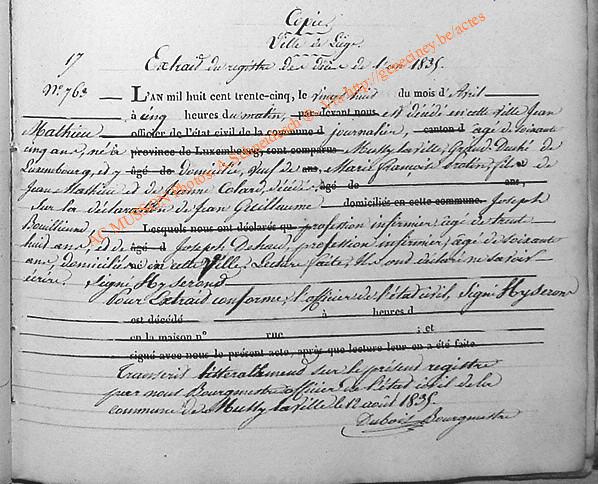 Copie
Ville de Liége.
17 Extrait du registre des décès de l'an 1835.
N° 763 L'AN mil huit cent trente-cinq, le vingt huit du mois d'Avril
à cinq heures du matin, par-devant nous est décédé en cette ville Jean
Mathieu officier de l'état civil de la commune d journalier, canton d agé de soixante
cinq ans, né à province de Luxembourg, sont comparus Mussy la ville, Grand Duché de
Luxembourg, et y âgé de domicilié, veuf de ans, Marie françoise , fils d de
Jean Mathieu et de Jeanne Colard, décédé. âgé de ans,
sur la déclaration de Jean Guillaume domiciliés en cette commune. Joseph
Bouillienne, Lesquels nous ont déclarés qu profession infirmier, agé de trente
huit ans, et de âgé d Joseph Dehaud, profession infirmier, agé de soixante
ans, domiciliés né en cette Ville, Lecture faite, Ils ont déclaré ne savoir
écrire. Signé Hyserond
Pour Extrait conforme, l'officier de l'état civil, Signé Hyserond
est décédé à heures d
en la maison n° rue ; et
signé avec nous le présent acte, après que lecture leur en a été faite.
Transcrit littéralement sur le présent registre
par nous Bourgmestre officier de l'état civil de la
commune de Mussy la ville le 12 août 1835.
Dubois Bourgmestre
AC MUSSON Photos: A. Schneidesch © - Lu sur http://geneciney.be/actes